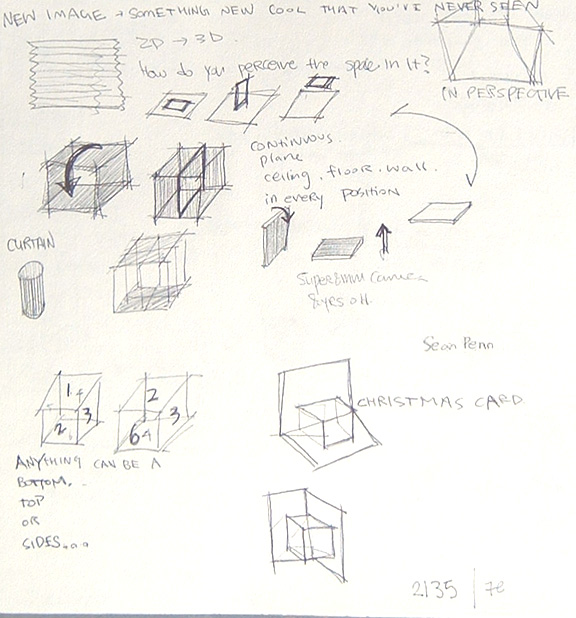 NEW IMAGE → SOMETHING NEW COOL THAT YOU'VE NEVER SEEN
2D → 3D.
How do you perceive the space in it?
IN PERSPECTIVE
CONTINUOUS.
plane
ceiling. floor. wall.
in every position
CURTAIN
Super 8mm camera
8yrs old.
Sean Penn
1 4 3 2
2 3 6 4
CHRISTMAS CARD
ANYTHING CAN BE A
BOTTOM.
TOP
OR
SIDES...
2135 | 7e